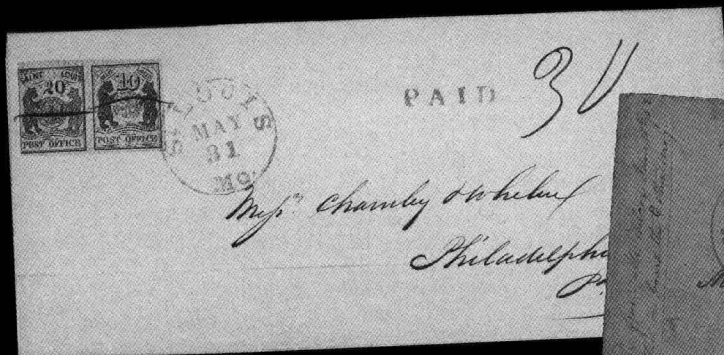 SAINT LOUIS
20
POST OFFICE
SAINT LOUIS
10
POST OFFICE
ST LOUIS
MAY
31
MO
PAID
30
Messrs Charnley & Whelen
Philadelphi
Pa